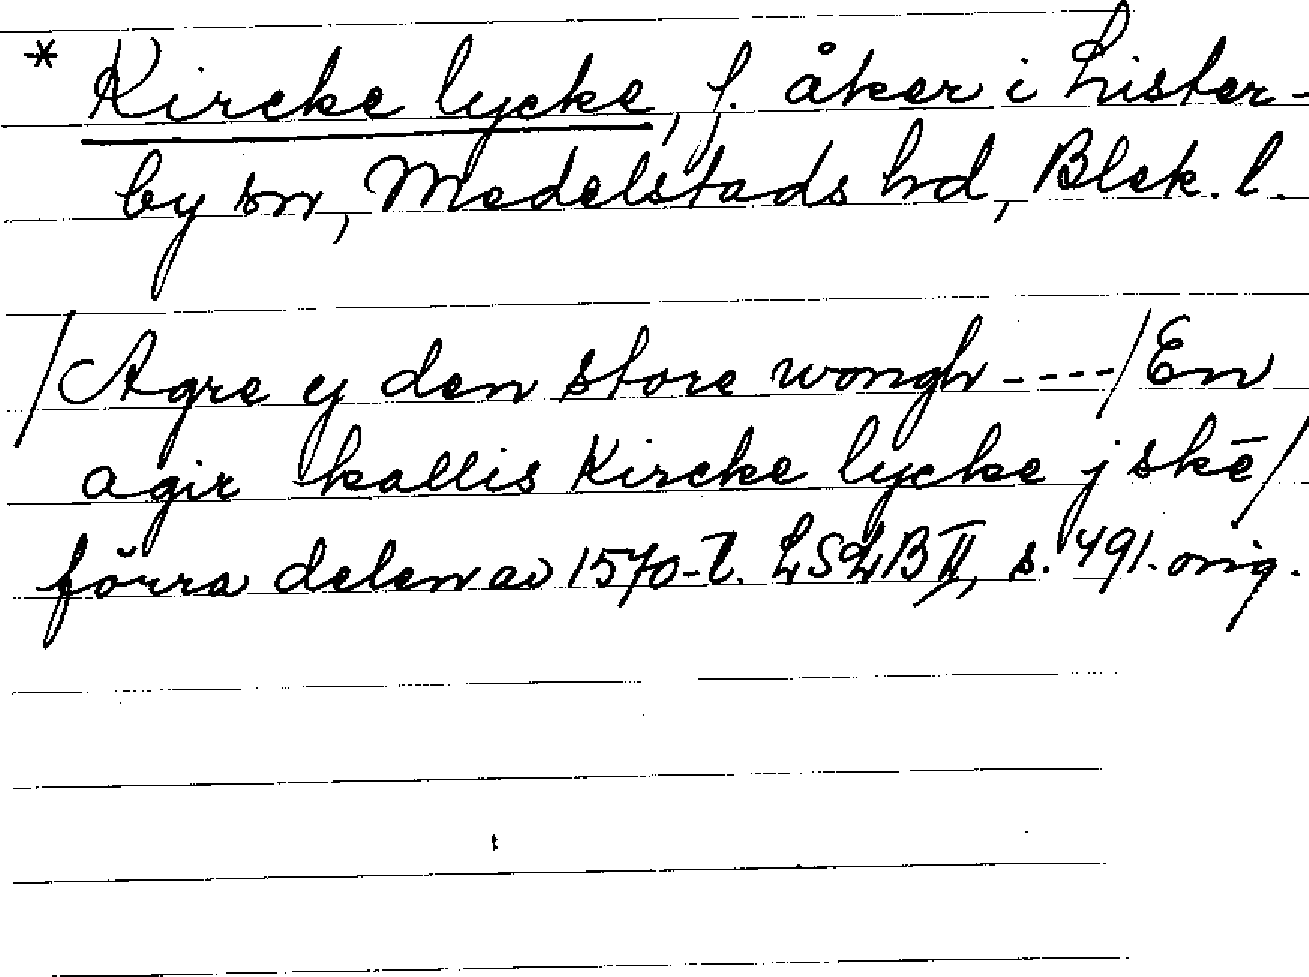 * Kircke lycke, f. åker i Lister-
by sn, Medelstads hd, Blek. l.
/Agre ej den store wongh ----/ En
agir kallis Kircke lycke j skē/
förra delen av 1570-t. LSLB II, s. 491. orig.